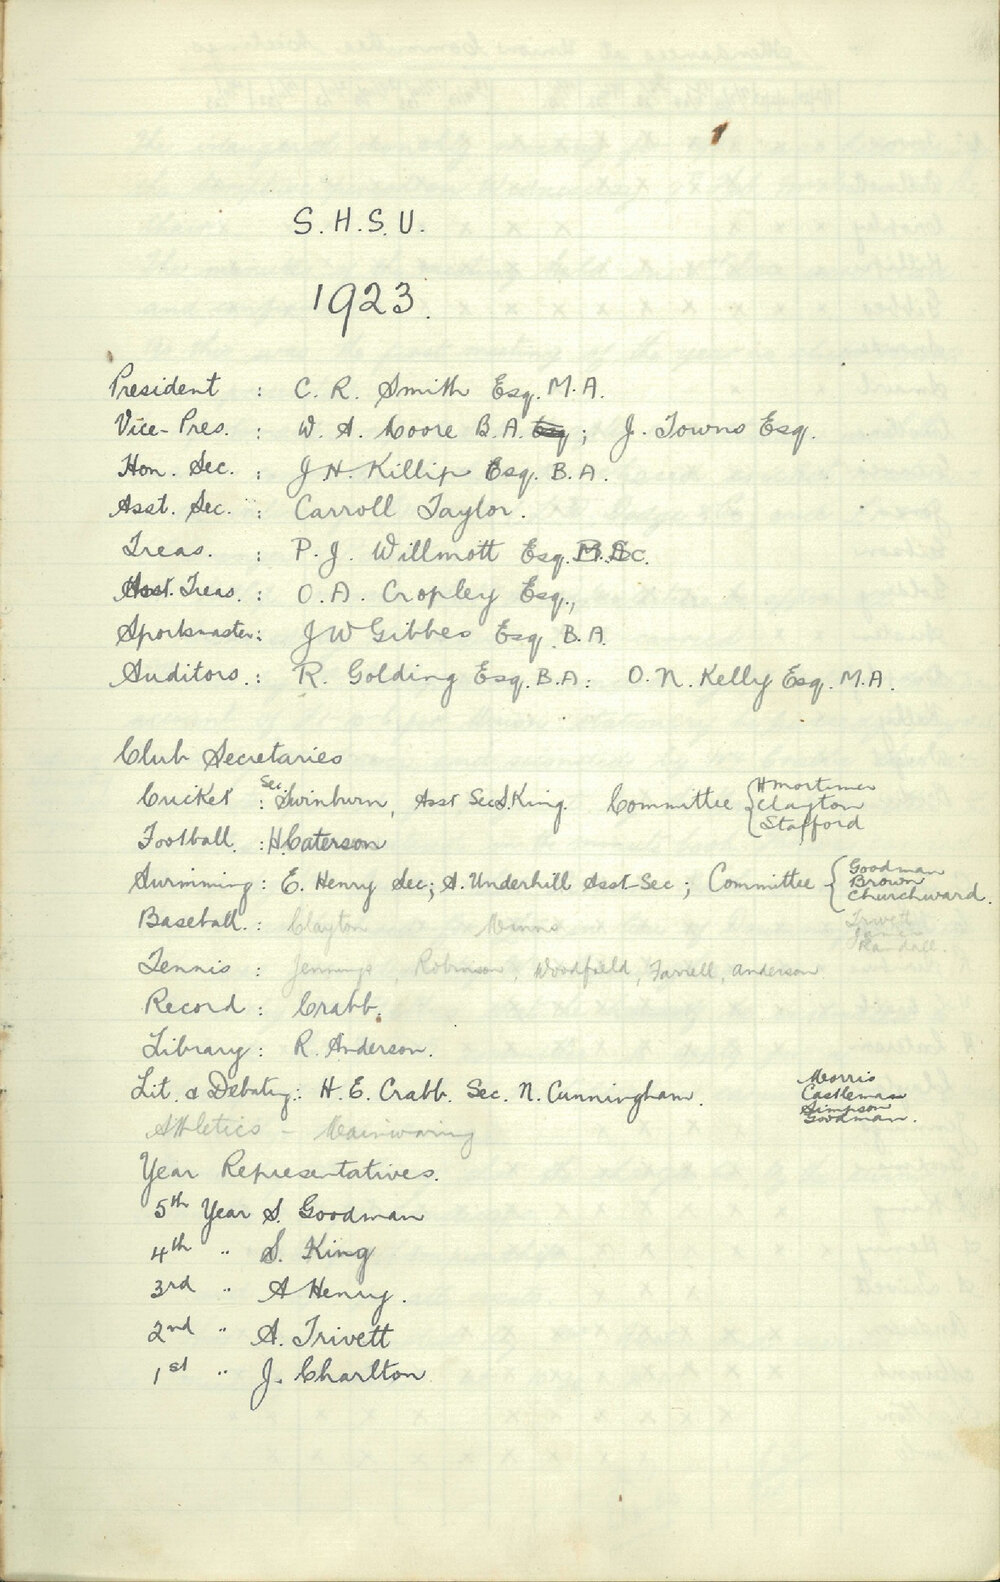 S. H. S. U.
1923.
President : C. R. Smith Esq. M.A.
Vice-Pres. : W. A. Coore B.A. Esq ; J. Towns Esq.
Hon. Sec. : J H. Killip Esq. B.A.
Asst. Sec. : Carroll Taylor.
Treas. : P. J. Willmott Esq. B.Sc.
Asst. Treas. : O. A. Cropley Esq.,
Sportsmaster : J W Gibbes Esq. B.A.
Auditors. : R. Golding Esq. B.A : O. N. Kelly Esq. M.A.
Club Secretaries
Cricket : Sec. Swinburn, Asst Sec S. King. Committee { H Mortimer
Clayton
Stafford
Football. : H. Caterson
Swimming : E. Henry Sec; A. Underhill Asst-Sec ; Committee { Goodman
Brown
Churchward.
Baseball. : Clayton Minns Trivett
James
Randall.
Tennis : Jennings Robinson, Woodfield, Farrell, Anderson
Record : Crabb.
Library : R. Anderson.
Lit. & Debatg. : H. E. Crabb. Sec. N. Cunningham. Morris
Castleman
Simpson
Goodman.
Athletics - Mainwaring
Year Representatives.
5th Year S. Goodman
4th " S. King
3rd " A Henry.
2nd " A. Trivett
1st " J. Charlton